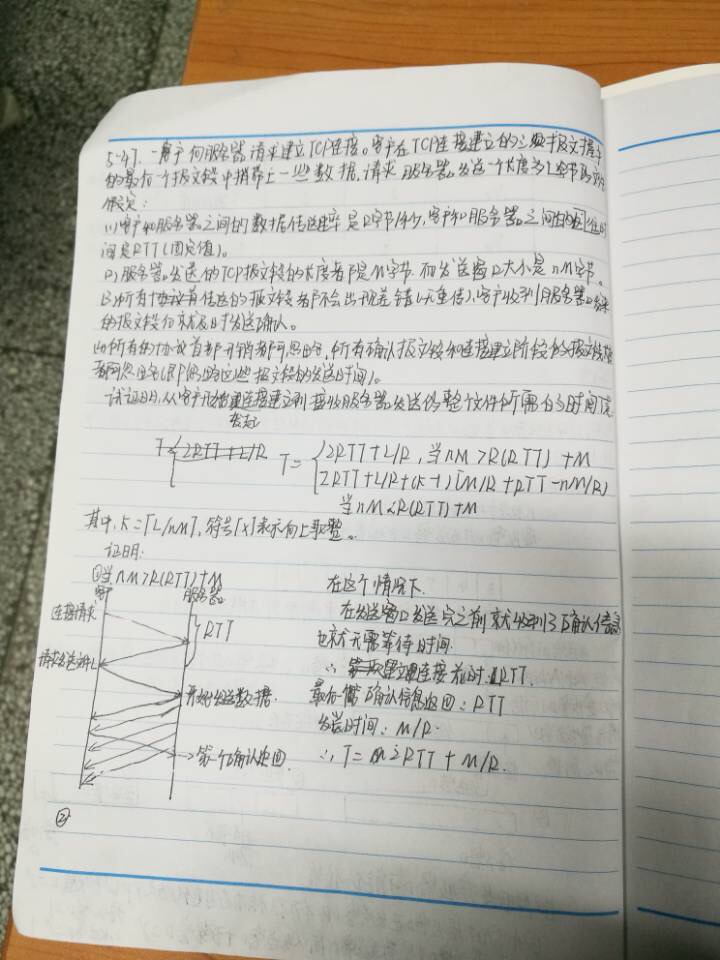 5-47. 一客户向服务器请求建立TCP连接。客户在TCP连接建立的三次报文握手
的最后一个报文段中捎带上一些数据,请求服务器发送一个长度为L字节的文件
假定:
(1)客户和服务器之间的数据传送速率是R字节/秒,客户和服务器之间的往返时
间是RTT(固定值)。
(2)服务器发送的TCP报文段的长度都是M字节.而发送窗口大小是nM字节。
(3)所有传送的报文段都不会出现差错(无重传),客户收到服务器发来
的报文段后就及时发送确认。
(4)所有的协议首部开销都可忽略,所有确认报文段和连接建立阶段的报文段
都可忽略(即忽略这些报文段的发送时间)。
试证明,从客户开始发起连接建立到接收服务器发送的整个文件所需的时间T是
T 2RTT+L/R T= 2RTT+L/R,当nM>R(RTT)+M
2RTT+L/R+(K-1)[M/R+RTT-nM/R)
当nM<R(RTT)+M
其中,K=⌈L/nM⌉,符号⌈x⌉表示向上取整。
证明:
①当nM>R(RTT)+M
客户 服务器
连接请求
RTT
请求发送文件L
开始发送数据
第一个确认返回
在这个情况下
在发送窗口发送完之前就收到了确认信息
也就无需等待时间.
∴ 建立连接花时 RTT.
确认信息返回:RTT
发送时间:M/R.
∴T= 2RTT+M/R.
②